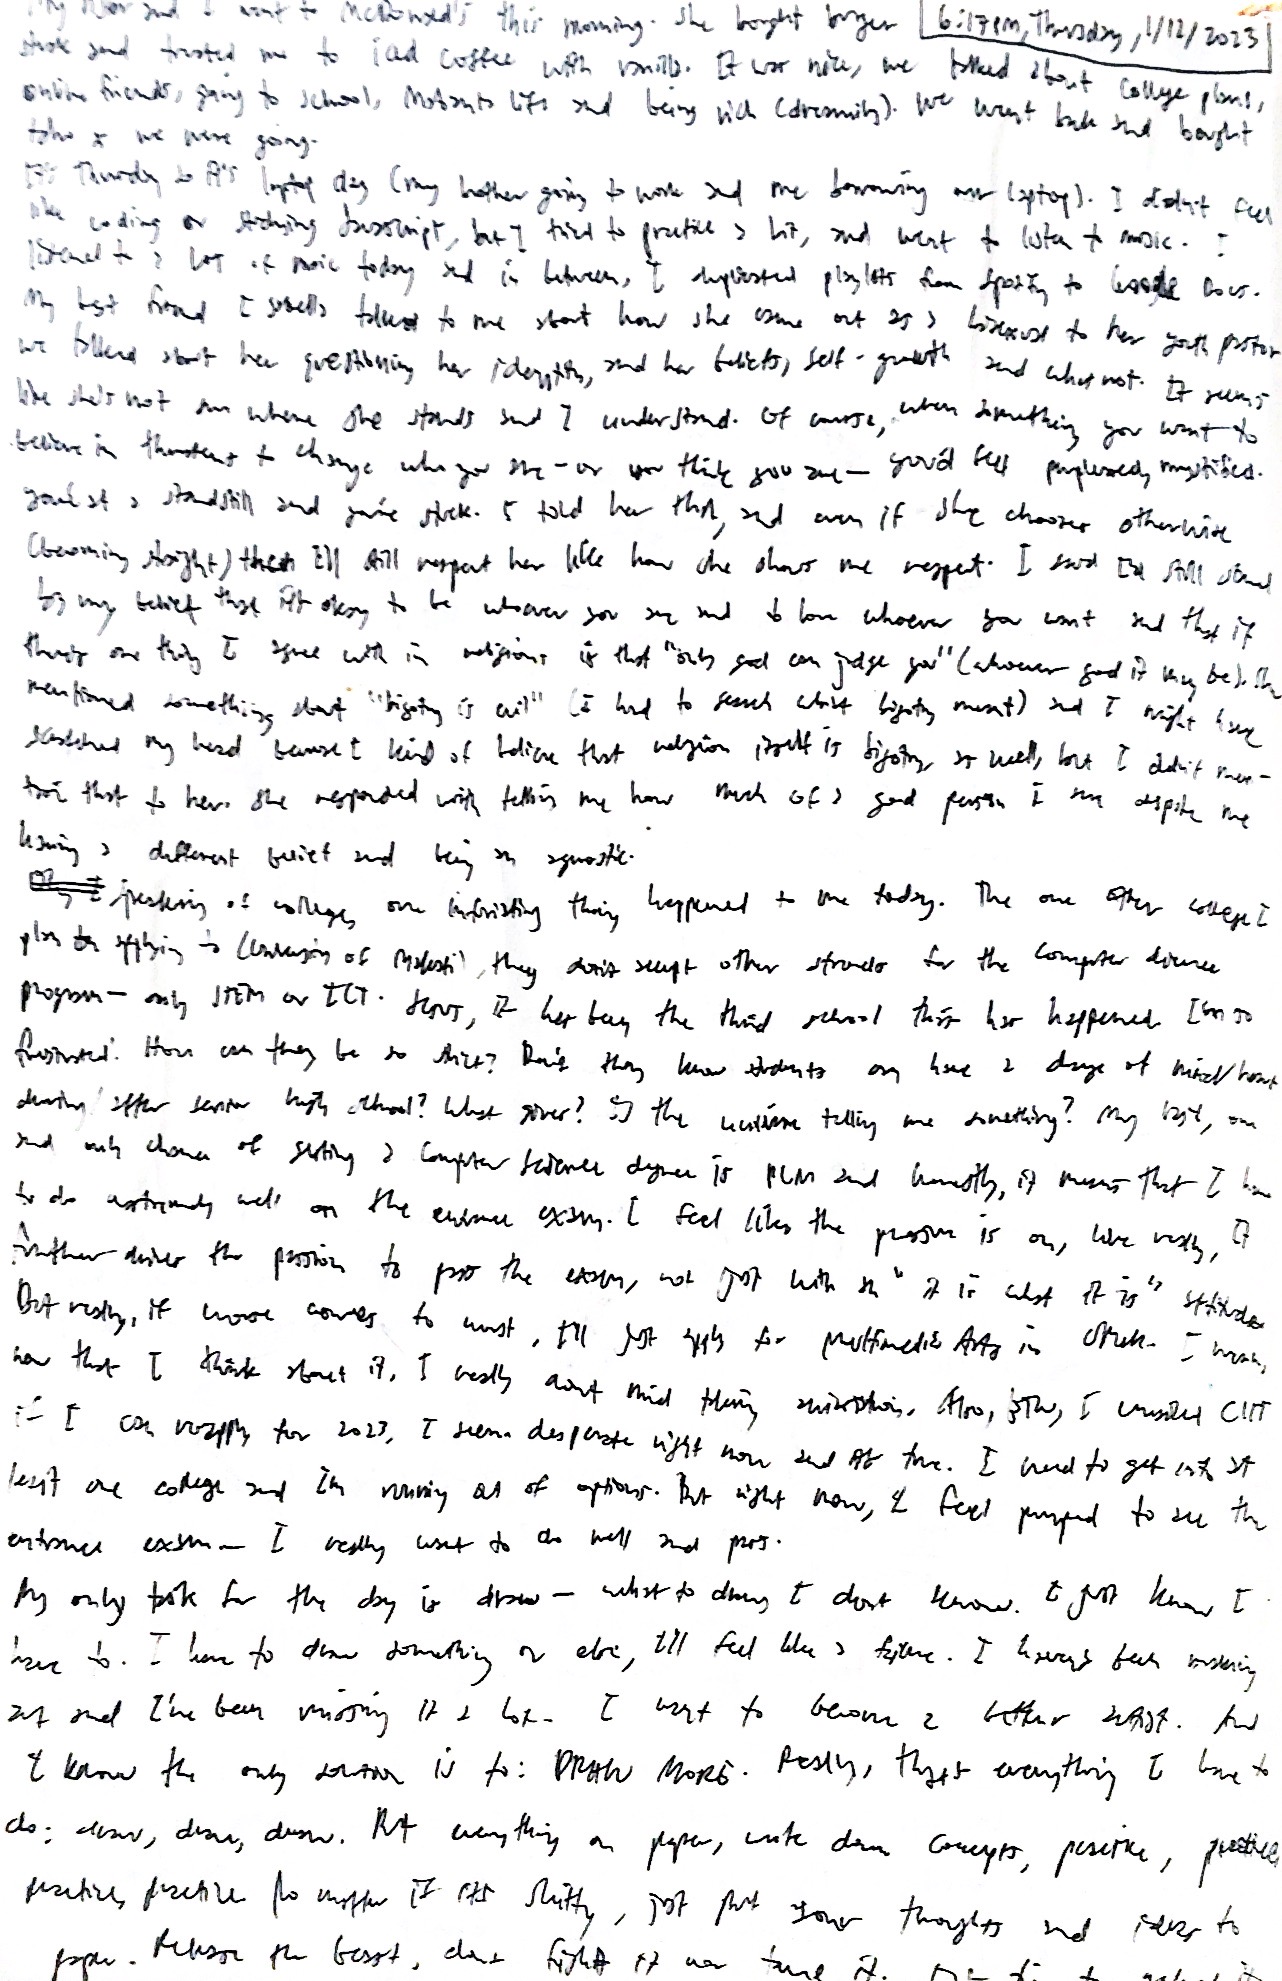 My sister and I went to McDonald's this morning. She bought burger
6:17PM, Thursday, 1/12/2023
steak and treated me to iced coffee with vanilla. It was nice, we talked about college plans,
online friends, going to school, life and being rich (dreamily). We went back and bought
we were going.
It's Thursday so it's laptop day (my brother going to work and me borrowing our laptop). I didn't feel
like coding or studying Javascript, but I tried to practice a bit, and went to listen to music. I
listened to a lot of music today and in between, I duplicated playlists from Spotify to Google Docs.
My best friend talked to me about how she came out as a bisexual to her youth pastor
we talked about her questioning her identity, and her beliefs, self-growth and whatnot. It seems
like she's not sure where she stands and I understand. Of course, when something you want to
believe in threatens to change who you are — or who think you are — you'd feel perplexed, mystified.
you're at a standstill and you're stuck. I told her that, and even if she chooses otherwise
(becoming straight) then I'll still respect her like how she shows me respect. I said I'd still stand
by my belief that it's okay to be whoever you are and to love whoever you want and that if
there's one thing I agree with in religions is that "only god can judge you" (whoever god it may be). She
mentioned something about "bigotry is evil" (I had to search what bigotry meant) and I might have
scratched my head because I kind of believe that religion itself is bigotry as well, but I didn't men-
tion that to her. She responded with telling me how much of a good person I am despite me
having a different belief and being an agnostic.
Speaking of colleges, one interesting thing happened to me today. The one other college I
plan on applying to (University of Makati), they don't accept other strands for the computer science
program — only STEM or ICT. It has been the third school this has happened. I'm so
frustrated! How can they be so strict? Don't they know students can have a change of mind/heart
during/after senior high school? What gives? Is the universe telling me something? My last, one
and only chance of getting a computer science degree is PLM and honestly, it means that I have
to do extremely well on the entrance exam. I feel like the pressure is on, like really, it
further drives the passion to pass the exam, not just with an "it is what it is" attitude.
But really, if worse comes to worst, I'll just apply for Multimedia Arts in I mean,
now that I think about it, I really don't mind taking animation. Also, btw, I emailed CIIT
if I can reapply for 2023, I seem desperate right now and it's true. I need to get into at
least one college and I'm running out of options. But right now, I feel pumped to see the
entrance exam — I really want to do well and pass.
My only task for the day is draw — what to draw, I don't know. I just know I
have to. I have to draw something or else, I'll feel like a failure. I haven't been making
art and I've been missing it a lot. I want to become a better artist. And
I know the only solution is to: DRAW MORE. Really, that's everything I have to
do: draw, draw, draw. Put everything on paper, write down concepts, practice, practice
practice, practice. No matter if it's shitty, just put your thoughts and ideas to
paper. Release the beast, don't fight it nor tame it.